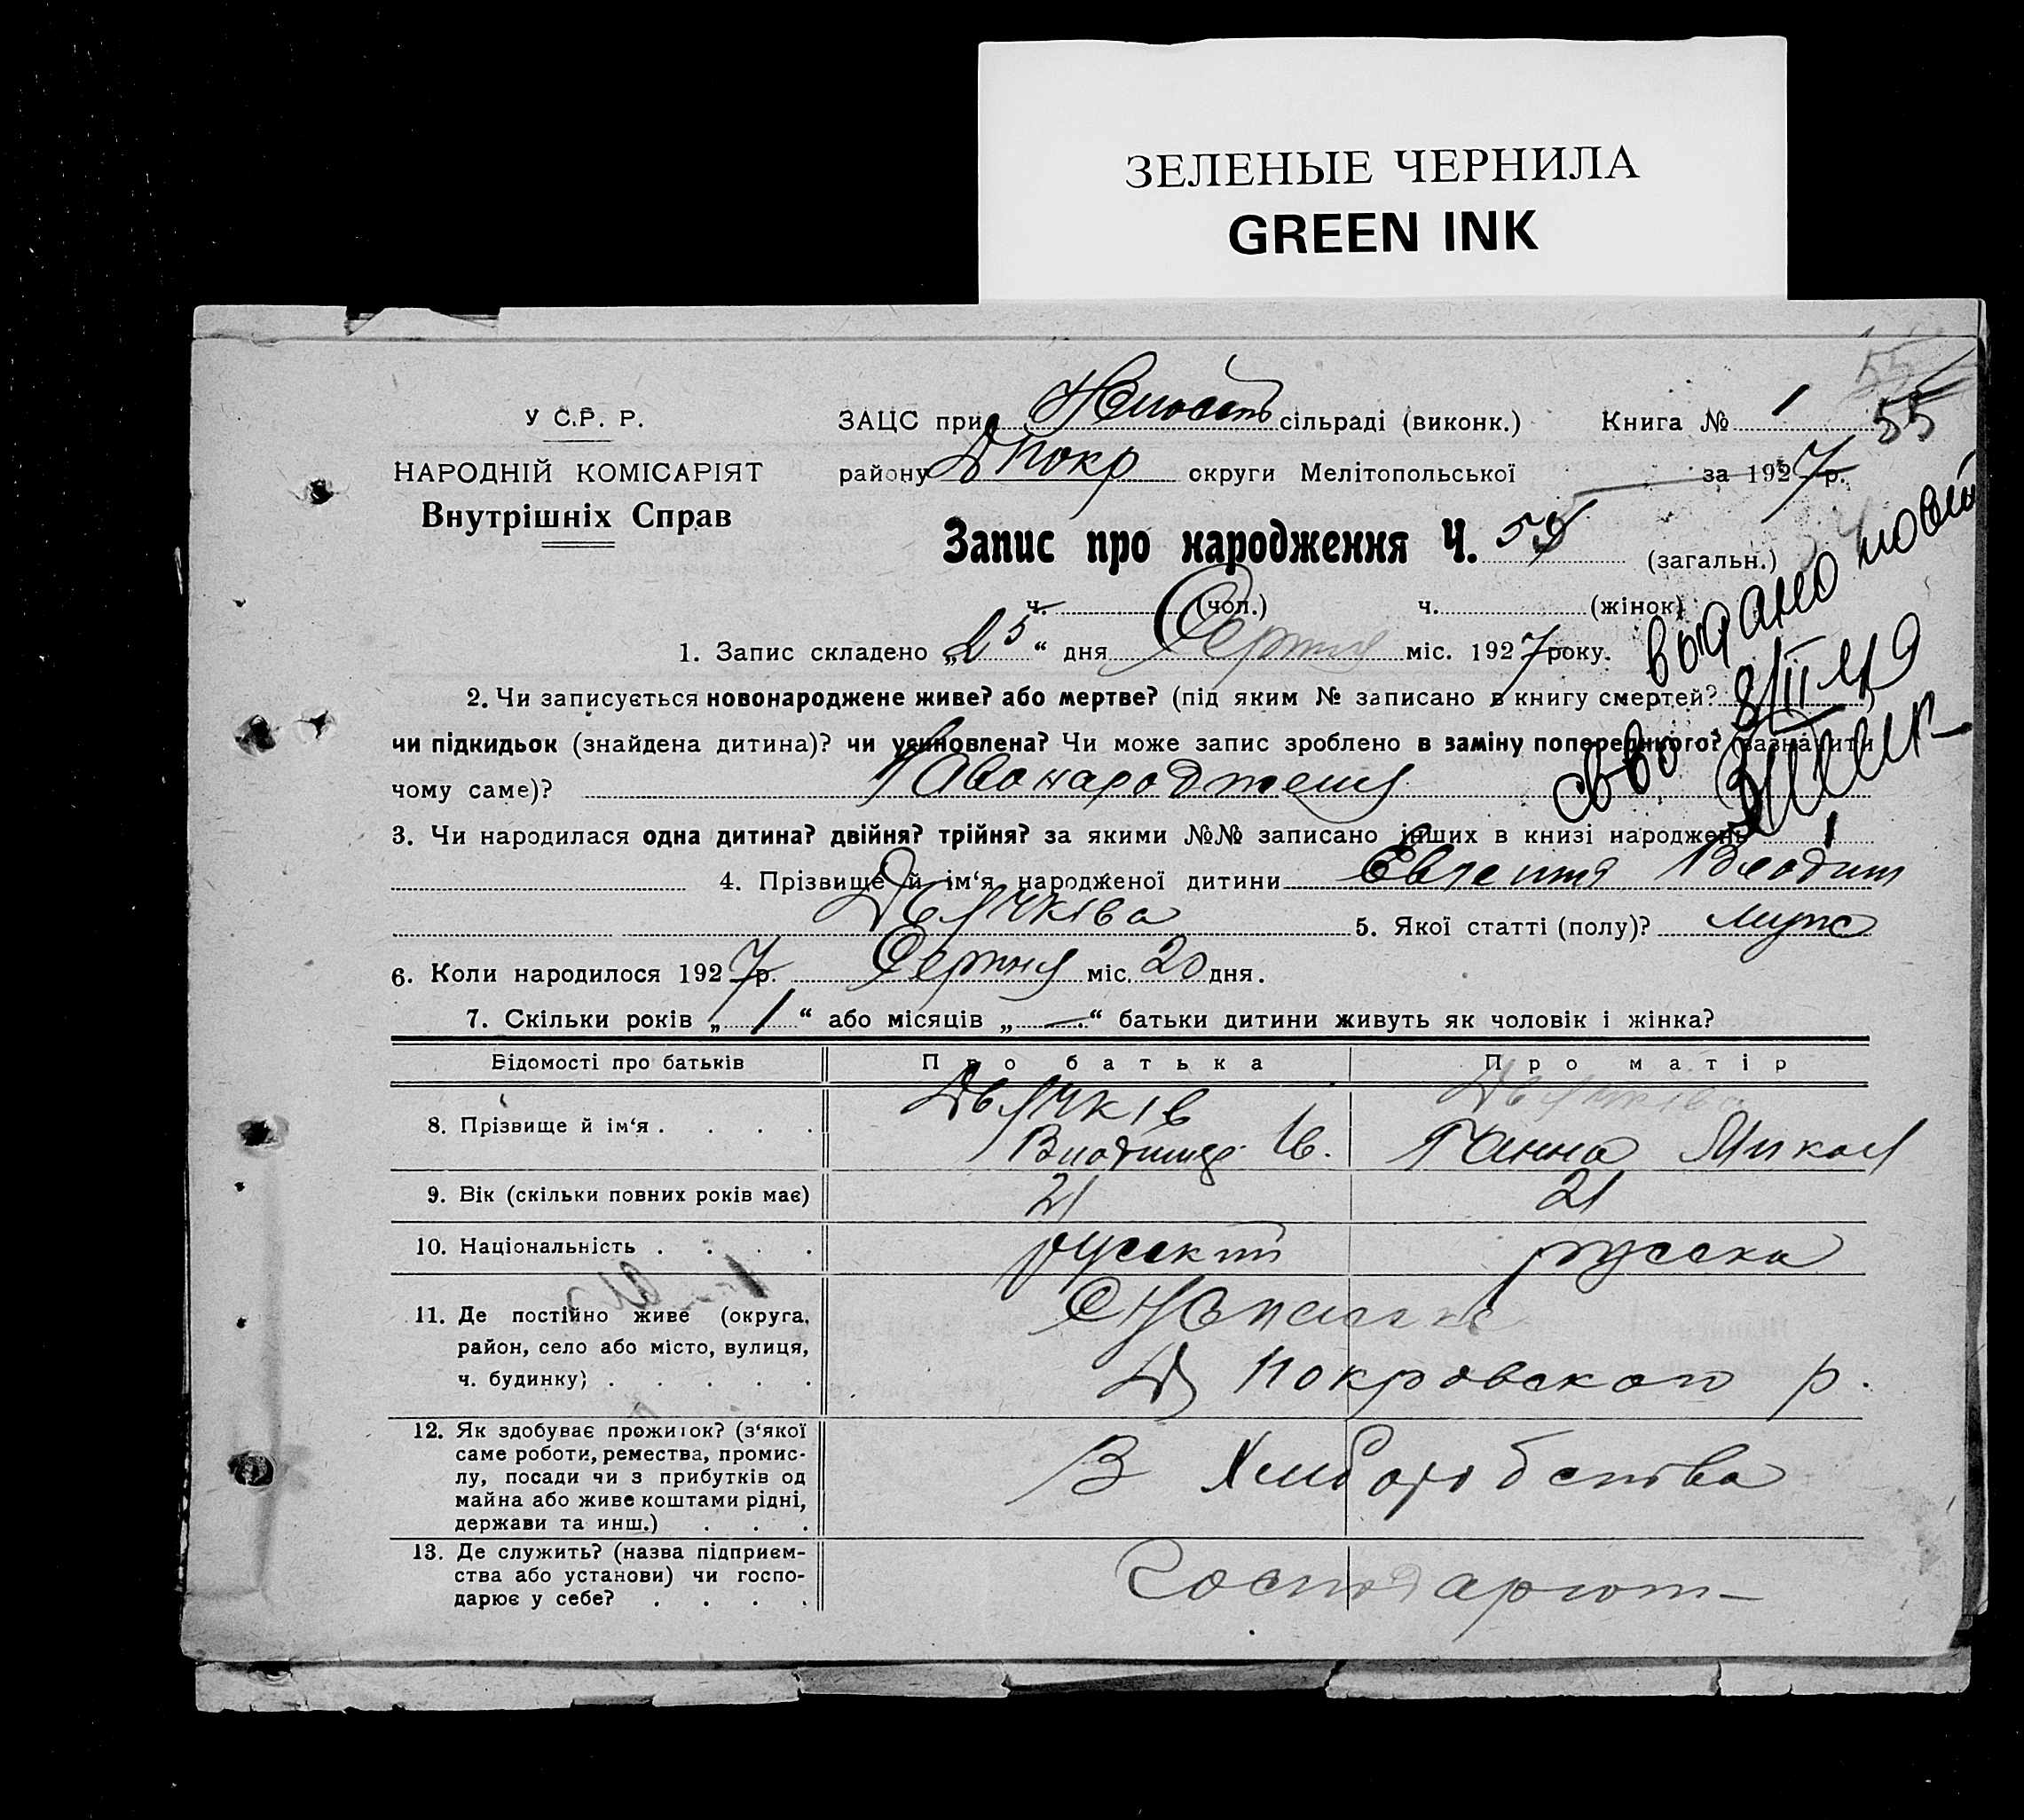 ЗЕЛЕНЫЕ ЧЕРНИЛА
GREEN INK
55
У С.Р. Р.
ЗАЦС при сільраді (виконк.) Книга № 1 55
НАРОДНІЙ КОМІСАРІЯТ
району Д Покр округи Мелітопольської за 1927 р.
Внутрішніх Справ
Запис про народження Ч. 55 (загальн.)
ч. (чол.) ч. (жінок)
видано
1. Запис складено „25“ дня Серпня міс. 1927 року.
2. Чи записується новонароджене живе? або мертве? (під яким № записано в книгу смертей?)
чи підкидьок (знайдена дитина)? чи усиновлена? Чи може запис зроблено в заміну попереднього? (зазначити
чому саме)?
3. Чи народилася одна дитина? двійня? трійня? за якими №№ записано інших в книзі народжень 1
4. Прізвище й ім‘я народженої дитини Евгения Владим
Дьячківа 5. Якої статті (полу)? муж
6. Коли народилося 1927 р. Серпня міс. 20 дня.
7. Скільки років „1“ або місяців „—“ батьки дитини живуть як чоловік і жінка?
Відомості про батьків Про батька Про матір
8. Прізвище й ім‘я . . . . Дьячків Дьячківа
Ів. Ганна Микол
9. Вік (скільки повних років має) 21 21
10. Національність . . . . русский русска
11. Де постійно живе (округа,
район, село або місто, вулиця,
ч. будинку) . . . . . Д Покровского р.
12. Як здобуває прожиток? (з‘якої
саме роботи, ремества, промис-
лу, посади чи з прибутків од
майна або живе коштами рідні,
держави та инш.) . . . В Хлиборобства
13. Де служить? (назва підприєм-
ства або установи) чи госпо-
дарює у себе? . . . . Господарют